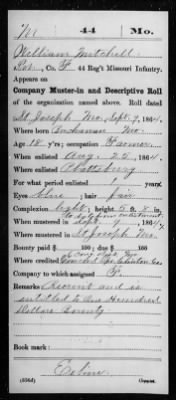 M 44 Mo.
William Mitchell
Pvt., Co. F, 44 Reg't Missouri Infantry.
Appears on
Company Muster-in and Descriptive Roll
of the organization named above. Roll dated
St Joseph Mo, Sept. 9, 1864.
Where born Buchanan Mo.
Age 18 y'rs; occupation Farmer
When enlisted Aug. 25, 1864
Where enlisted Plattsburg
For what period enlisted 1 years.
Eyes blue; hair fair
Complexion light; height 5 ft. 8 in.
When mustered in Sept. 9, 1864
Where mustered in St Joseph Mo.
Bounty paid $ 100; due $ 100
Where credited Clinton Co.
Company to which assigned F.
Remarks Recruit and is
entitled to One Hundred
Dollars bounty
Book mark:
(356d) Copyist.